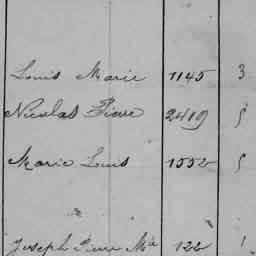 Louis Marie 1145 3
Nicolas Pierre 2419 5
Marie Louis 1552 5
Joseph Pierre Mie 122 1